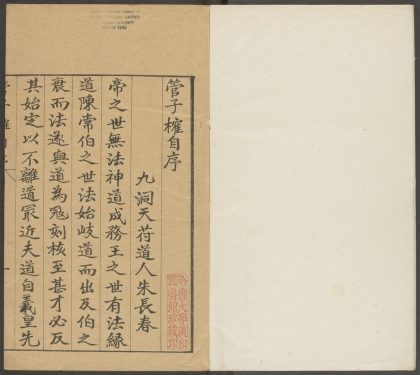 管子榷自序
九洞天苻道人朱長春
帝之世無法神道成務王之世有法緣
道陳常伯之世法始岐道而出及伯之
衰而法遂與道為
刻核至甚才必反
其始定以不離道最近夫道自羲皇先
哈佛大學漢和
圖書館珍藏印